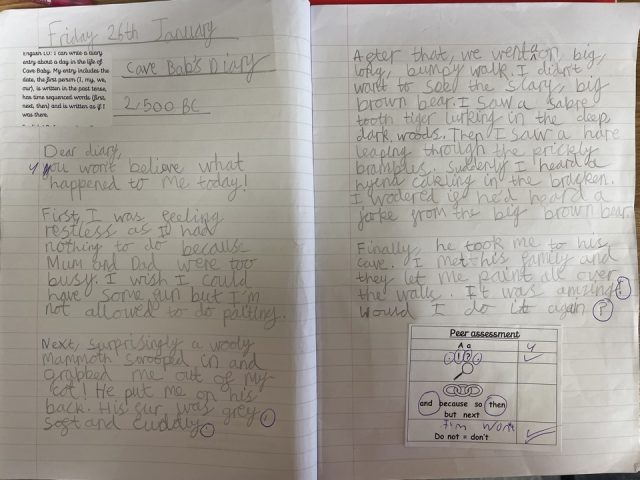 Friday 26th January
English LO: I can write a diary
entry about a day in the life of
Cave Baby. My entry includes the
date, the first person (I, my, we,
our), is written in the past tense,
has time sequenced words (first,
next, then) and is written as if I
was there.
Cave Bab's Diary
2,500 BC
Dear diary,
y you won't believe what
happened to me today!
First, I was feeling
restless as I had
nothing to do because
Mum and Dad were too
busy. I wish I could
have some fun but I'm
not allowed to do paiting.
Next, surprisingly a wooly
mammoth swooped in and
grabbed me out of my
cot! He put me on his
back. His fur was grey
soft and cuddly.
After that, we went on big,
long, bumpy walk. I didn't
want to see the scary, big
brown bear. I saw a sabre
tooth tiger lurking in the deep,
dark woods. Then I saw a hare
leaping through the prickly
brambles. Suddenly I heard a
hyena cakling in the bracken.
I wodered if he'd heard a
joke from the big brown bear.
Finally, he took me to his
cave. I met his family and
they let me paint all over
the walls. It was amazing!
Would I do it again?
Peer assessment
A a y
. ! ? ,
and because so then
but next
I'm won't
Do not = don't